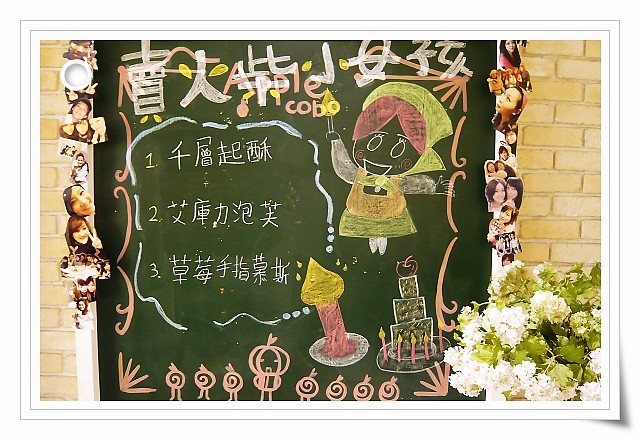 賣火柴小女孩
Apple
cobo
1. 千層起酥
2. 艾庫力泡芙
3. 草莓手指慕斯